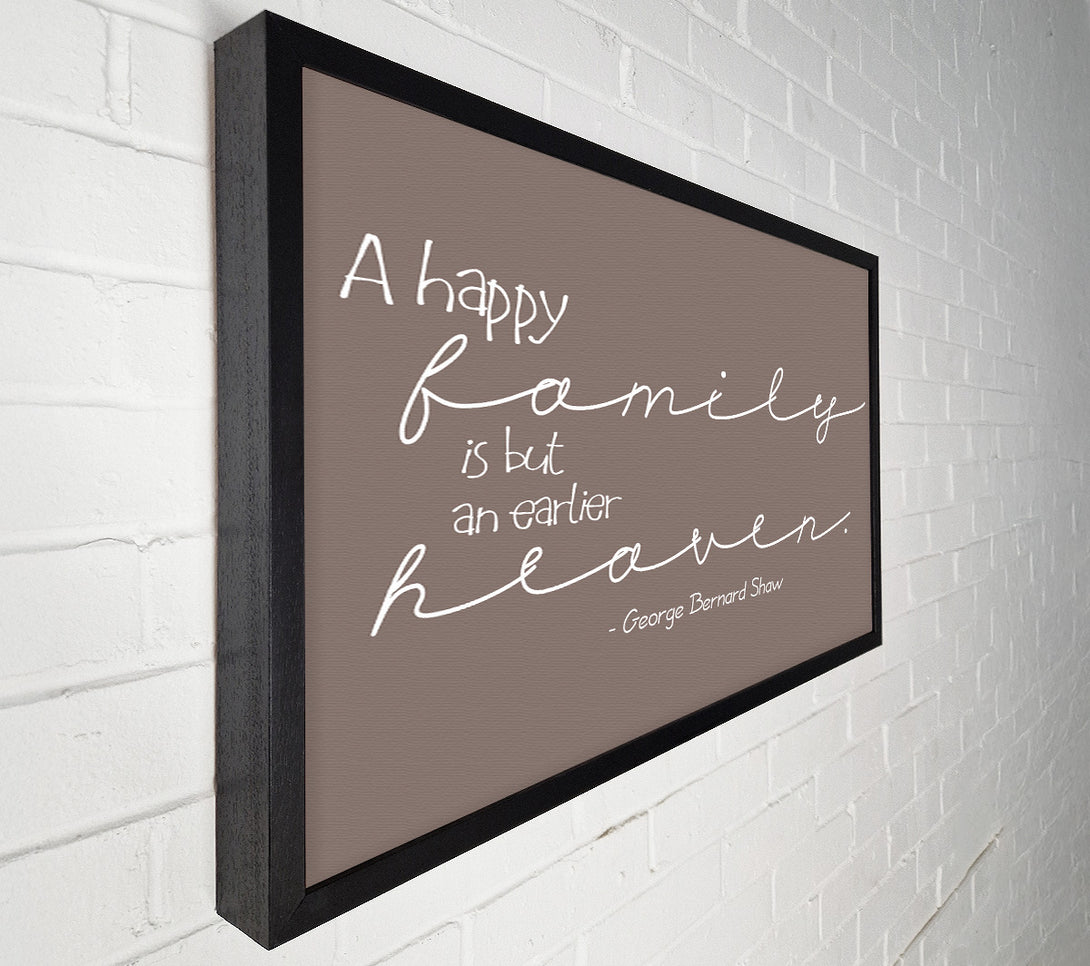 A happy
family
is but
an earlier
heaven.
- George Bernard Shaw